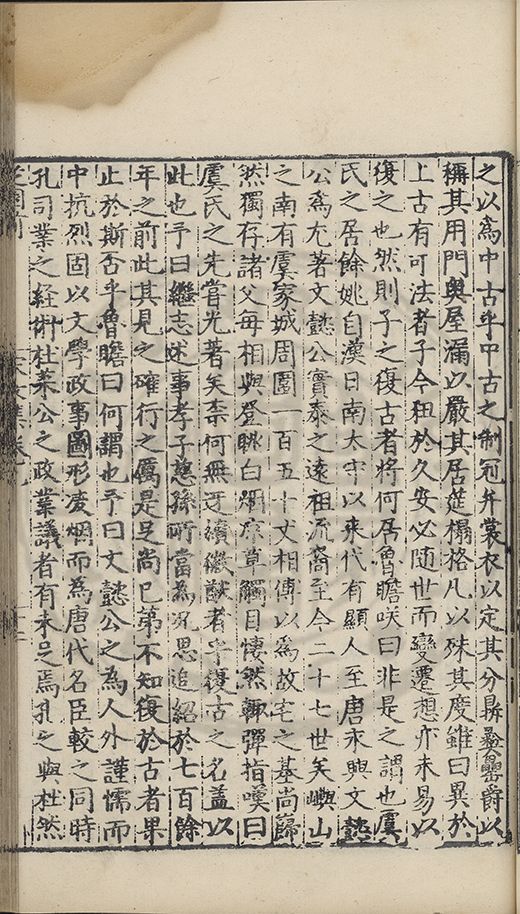 之以為中古乎中古之制冠弁裳衣以定其分鼎彝罍爵以
稱其用門奥屋漏以嚴其居莚榻格几以殊其度雖曰異於
上古有可法者子今狃於久安必随世而變遷想亦未易以
復之也然則子之復古者将何居魯瞻咲曰非是之謂也虞
氏之居餘姚自漢日南太守以来代有顯人至唐永興文懿
公為尤著文懿公實泰之遠祖流裔至今二十七世矣嶼山
之南有虞家城周圍一百五十丈相傳以為故宅之基尚巋
然獨存諸父每相與登眺白烟凉草觸目悽然輙彈指嘆曰
虞氏之先嘗光著矣柰何無迓續徽猷者乎復古之名盖以
此也予曰繼志述事孝子慈孫所當為况思追紹於七百餘
年之前此其見之確行之厲是足尚巳第不知復於古者果
止於斯否乎魯瞻曰何謂也予曰文懿公之為人外謹懦而
中抗烈固以文學政事圖形凌烟而為唐代名臣較之同時
孔司業之経術杜莱公之政業議者有未足焉孔之與杜然